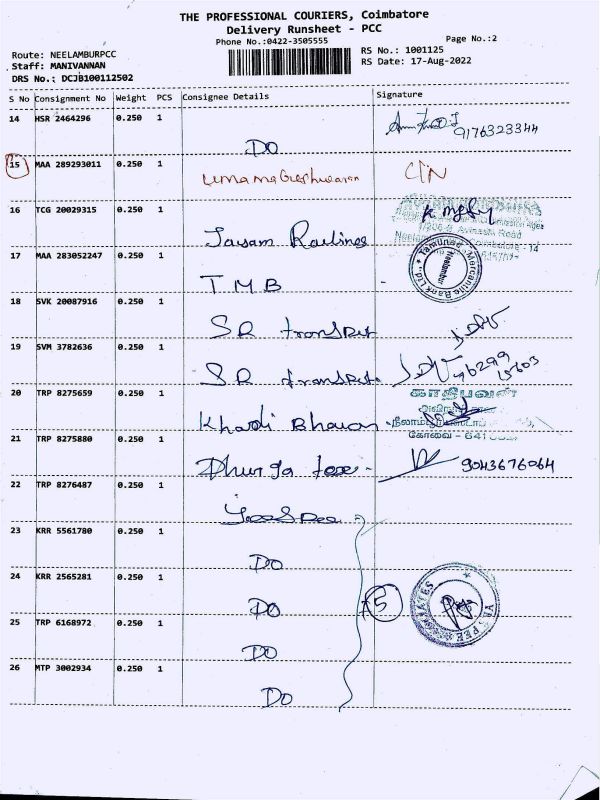 THE PROFESSIONAL COURIERS, Coimbatore
Delivery Runsheet - PCC
Phone No.:0422-3505555
Page No.:2
Route: NEELAMBURPCC
RS No.: 1001125
Staff: MANIVANNAN
RS Date: 17-Aug-2022
DRS No.: DCJB100112502
S No Consignment No Weight PCS Consignee Details Signature
14 HSR 2464296 0.250 1 DO 9176323344
15 MAA 289293011 0.250 1 Umamageshwaran C/N
16 TCG 20029315 0.250 1 Jayam Railines
17 MAA 283052247 0.250 1 TMB
Tamilnad Mercantile Bank Ltd.,
Neelambur
18 SVK 20087916 0.250 1 SR transport
19 SVM 3782636 0.250 1 SR transport
20 TRP 8275659 0.250 1 Khardi Bhavan
காதிபவன்
21 TRP 8275880 0.250 1 Dhurga tex 9043676064
கோவை - 641
22 TRP 8276487 0.250 1
23 KRR 5561780 0.250 1 DO
24 KRR 2565281 0.250 1 DO 5
25 TRP 6168972 0.250 1 DO
26 MTP 3002934 0.250 1 DO